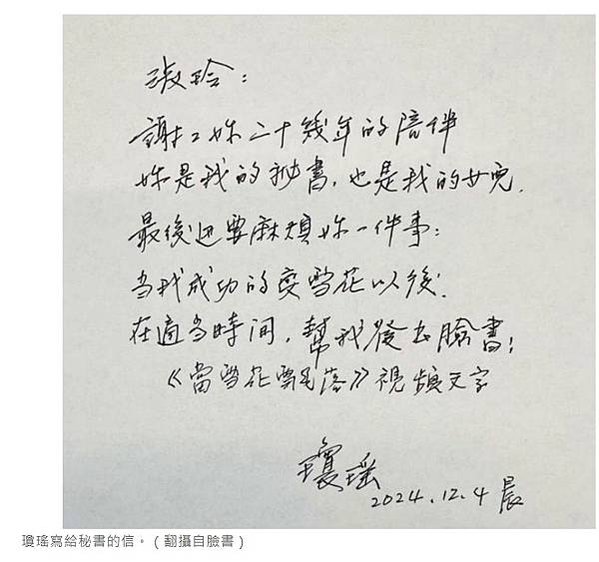 淑玲：
謝謝妳二十幾年的陪伴
妳是我的秘書，也是我的女兒。
最後还要麻煩妳一件事：
当我成功的变雪花以後。
在適当時间，幫我發去臉書：
《當雪花飄落》視頻文字
瓊瑤
2024.12.4 晨
瓊瑤寫給秘書的信。（翻攝自臉書）